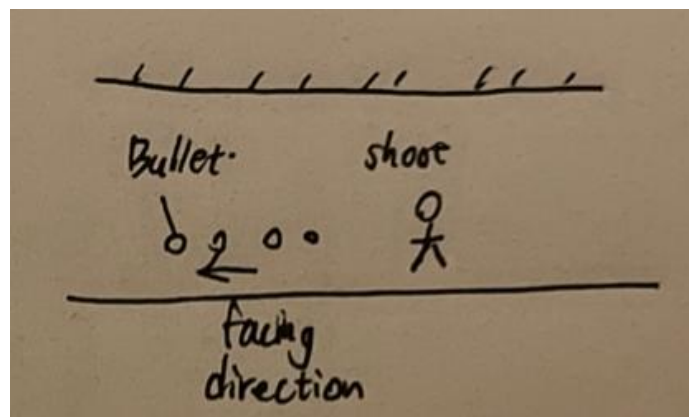 Bullet.
shoot
facing
direction